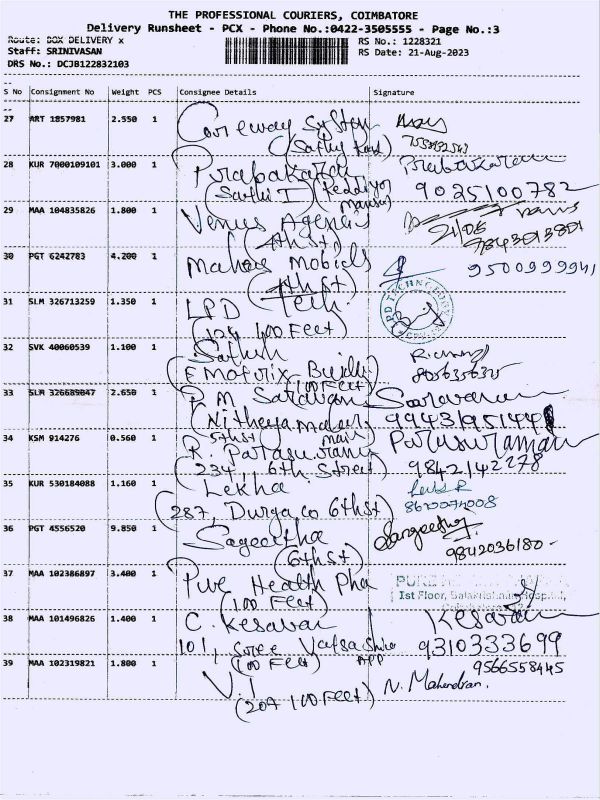 THE PROFESSIONAL COURIERS, COIMBATORE
Delivery Runsheet - PCX - Phone No.:0422-3505555 - Page No.:3
Route: BOX DELIVERY x
RS No.: 1228321
Staff: SRINIVASAN
RS Date: 21-Aug-2023
DRS No.: DCJB122832103
S No Consignment No Weight PCS Consignee Details Signature
27 ART 1857981 2.550 1 Careway System
(Sathy Road)
28 KUR 7000109101 3.000 1 Prabakaran Prabakaran
(Sakthi I Reddiyar 9025100782
29 MAA 104835826 1.800 1 Venus Agencies
(4th st) 9843013801
30 PGT 6242783 4.200 1 Mahas Mobiles 9500999941
(4th st)
31 SLM 326713259 1.350 1 LPD Tech.
(124 100 Feet)
32 SVK 40060539 1.100 1 Sathish Richard
(E Matrix Build 8056356325
(100 Feet)
33 SLM 326689847 2.650 1 P M Saravana Saravanan
(Nitheya
5th st main)
34 KSM 914276 0.560 1 R. Parasurama Parasuraman
(234 6th Street) 9842142278
35 KUR 530184088 1.160 1 Lekha
(287, Durga co 6th st)
36 PGT 4556520 9.850 1 Sageetha Sangeetha
(6th st) 9842036180
37 MAA 102386897 3.400 1 Pure Health Pha
(100 Feet) 1st Floor, Balakrishnan Hospital,
38 MAA 101496826 1.400 1 C. Kesavan Kesavan
101, Sree Vatsa 9310333699
(100 Feet) APP 9566558445
39 MAA 102319821 1.800 1 V.I N. Mahendran.
(204 100 Feet)